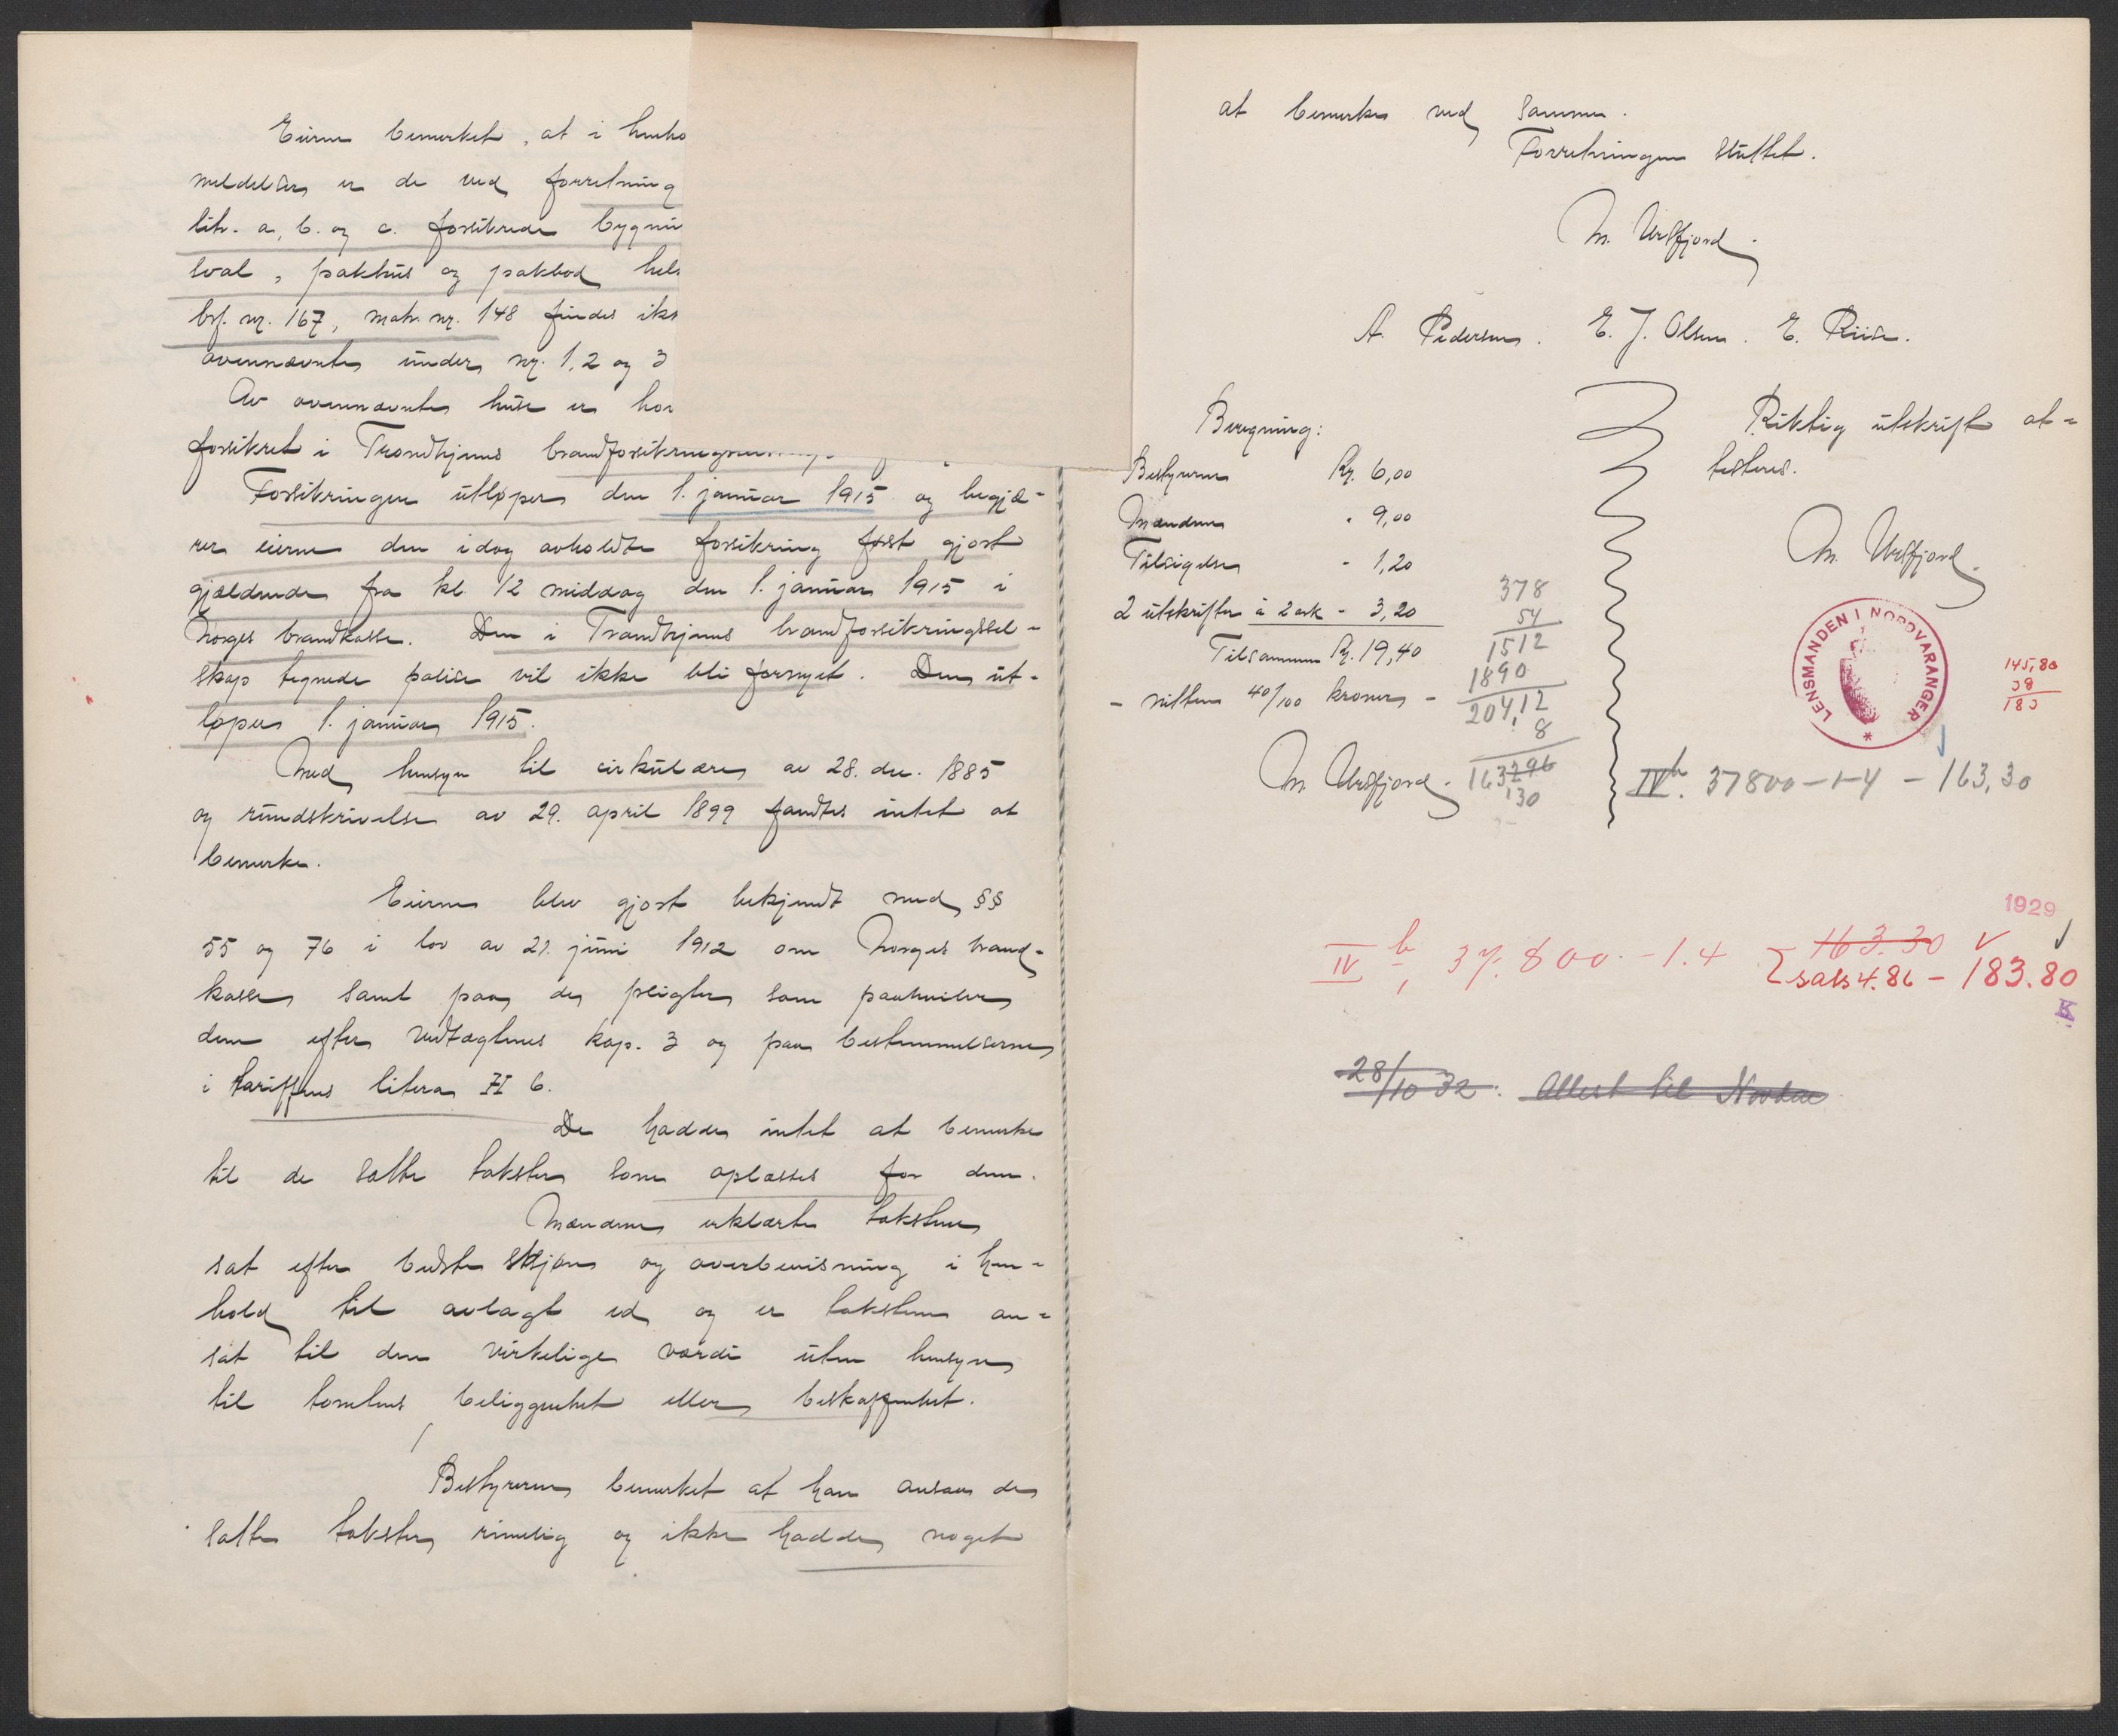 Eierne bemerket, at i henho
meldelsen er de ved forretning
litr. a, b. og c. forsikrede bygnin
sval, pakhus og pakbod hels
brf. nr. 167, matr. nr. 148 findes ikk
ovennævnte under nr. 1, 2 og 3
Av ovennævnte huse er hov
forsikret i Trondhjems
Forsikringen utløper den 1. januar 1915 og begjæ-
rer eierne den idag avholdte forsikring først gjort
gjældende fra kl. 12 middag den 1. januar 1915 i
Norges brandkasse. Den i Trondhjems brandforsikringssel-
skap tegnede police vil ikke bli fornyet. Den ut-
løper 1. januar 1915.
Med hensyn til cirkulære av 28. dec. 1885
og rundskrivelse av 29. april 1899 fandtes intet at
bemerke.
Eierne blev gjort bekjendt med §§
55 og 76 i lov av 21. juni 1912 om Norges brand-
kasse samt paa de pligter som paahviler
dem efter vedtægtenes kap. 3 og paa bestemmelserne
i tariffens litera H 6.
De hadde intet at bemerke
til de satte takster som oplæstes for dem.
Mændene erklærte taksterne
sat efter bedste skjøn og overbevisning i hen-
hold til avlagt ed og er taksterne an-
sat til den virkelige værdi uten hensyn
til tomtens beliggenhet eller beskaffenhet.
Bestyreren bemerket at han ansaa de
satte takster rimelig og ikke hadde noget
at bemerke ved samme.
Forretningen sluttet.
M. Ursfjord.
A. Pedersen. E. J. Olsen. E. Riise.
Beregning:
Bestyreren Kr. 6,00
Mændene " 9,00
Tilsigelse - 1,20
2 utskrifter à 2 ark - 3,20
Tilsammen Kr. 19,40
- nitten 40/100 kroner -
M. Ursfjord.
378
54
1512
1890
20412
8
163296
130
Riktig utskrift at-
testeres.
M. Ursfjord.
LENSMANDEN I NORDVARANGER
145,80
38
183
IVb. 37800-1-4 - 163,30
1929
IVb, 37.800.-1.4 163.30
sats 4.86 - 183.80
K
28/10 32: Attest til Norden